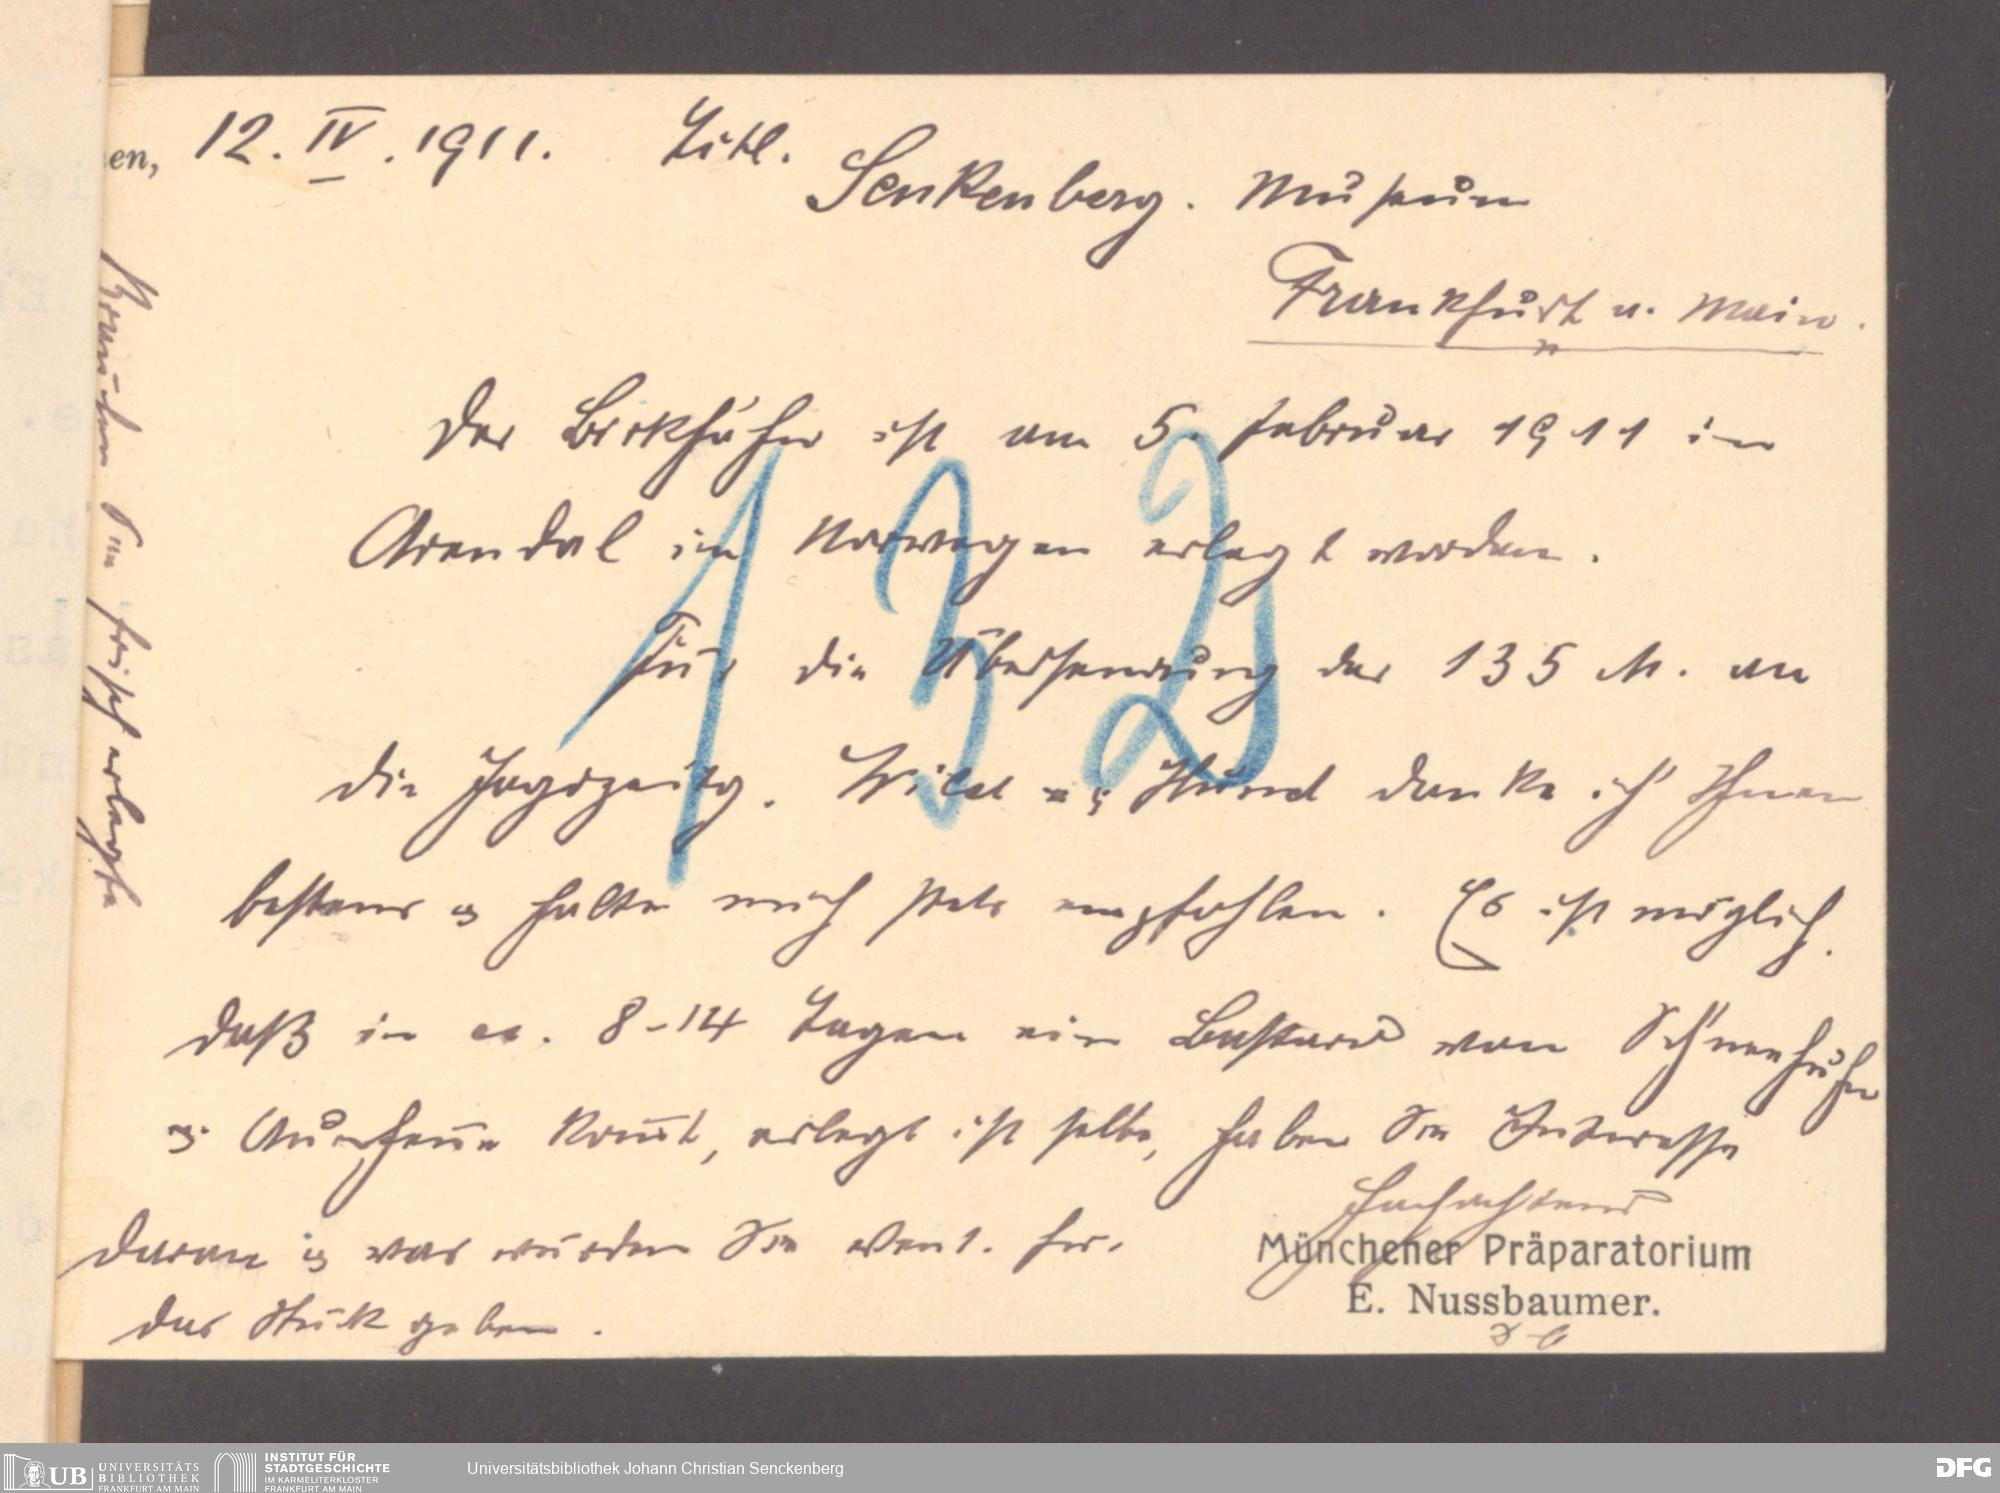 en, 12. IV. 1911. Titl.
Senkenberg. Museum
Frankfurt a. Main.
Der Birkhahn ist am 5. Februar 1911 in
Arendal in Norwegen erlegt worden.
Für die Übersendung der 135 M. an
die Jagdzeitg. Wild u. Hund danke ich Ihnen
bestens u. halte mich stets empfohlen. Es ist möglich.
daß in ca. 8-14 Tagen ein Bastard von Schneehuhn
u. Auerhenne kommt, erlegt ist selbe, haben Sie Interesse
daran u. was würden Sie event. für
das Stück geben.
Hochachtend
Münchener Präparatorium
E. Nussbaumer.
Brauchen Sie frisch erlegte
132
UB UNIVERSITÄTS
BIBLIOTHEK
FRANKFURT AM MAIN
INSTITUT FÜR
STADTGESCHICHTE
IM KARMELITERKLOSTER
FRANKFURT AM MAIN
Universitätsbibliothek Johann Christian Senckenberg
DFG